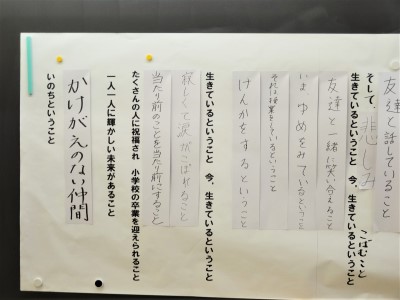 友達と話していること
そして、悲しみ
こばむこと
生きているということ 今、生きているということ
友達と一緒に笑い合えること
いま ゆめをみているということ
それは授業をしているということ
けんかをするということ
生きているということ 今、生きているということ
寂しくて涙がこぼれること
当たり前のことを当たり前にすること
たくさんの人に祝福され 小学校の卒業を迎えられること
一人一人に輝かしい未来があること
かけがえのない仲間
いのちということ